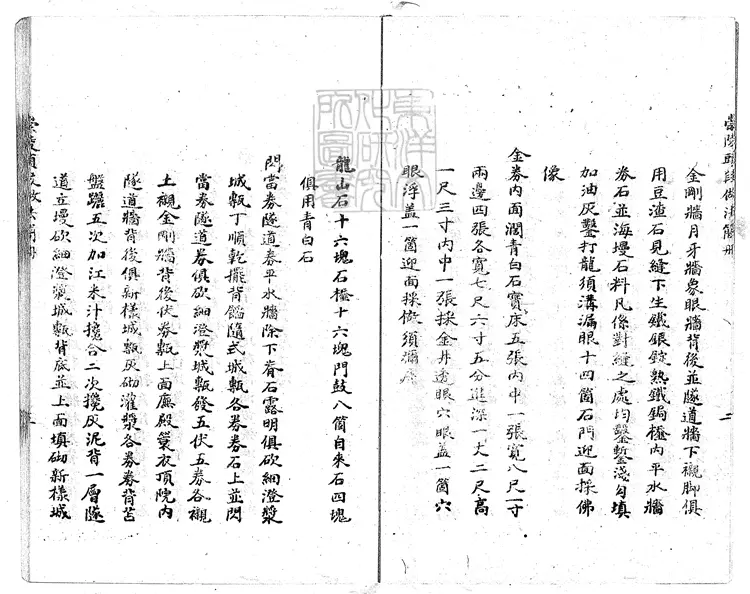 崇陵頭段做法簡冊
二
金剛牆月牙牆象眼牆背後並隧道牆下襯脚俱
用豆渣石見縫下生鐵銀錠熟鐵鋦㯭內平水牆
券石並海墁石料凡係對縫之處均鑿鏨淺勾填
加油灰鑿打龍須溝漏眼十四箇石門迎面採佛
像
金券內面濶青白石寳床五張內中一張寬八尺一寸
兩邊四張各寬七尺六寸五分進深一丈二尺高
一尺三寸內中一張採金井透眼六眼盖一箇六
眼浮盖一箇迎面採做須彌座
龍山石十六塊石㯭十六塊門鼓八箇自来石四塊
俱用青白石
閃當券隧道券平水牆除下脊石露明俱砍細澄漿
城甎丁順乾擺背餡隨式城甎各券券石上並閃
當券隧道券俱砍細澄漿城甎發五伏五券各襯
土襯金剛牆背後伏券甎上面廡殿簑衣頂院內
隧道牆背後俱新樣城甎灰砌灌漿各券券背苫
盤踏五次加江米汁攙合二次攪灰泥背一層隧
道立墁砍細澄漿城甎背底並上面填砌新樣城
崇陵頭段做法簡冊
三
東洋文化研究所圖書